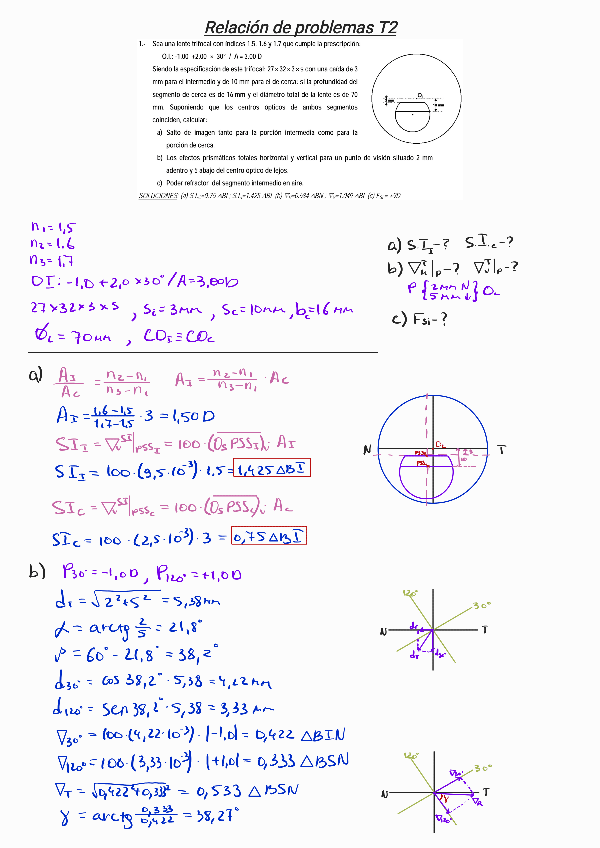 Relación de problemas T2
1.- Sea una lente trifocal con índices 1.5, 1.6 y 1.7 que cumple la prescripción.
O.I.: -1.00 +2.00 × 30° / A = 3.00 D
Siendo la especificación de este trifocal: 27 x 32 x 3 x 5 con una caída de 3
mm para el intermedio y de 10 mm para el de cerca, si la profundidad del
segmento de cerca es de 16 mm y el diámetro total de la lente es de 70
mm. Suponiendo que los centros ópticos de ambos segmentos
coinciden, calcular:
a) Salto de imagen tanto para la porción intermedia como para la
porción de cerca
b) Los efectos prismáticos totales horizontal y vertical para un punto de visión situado 2 mm
adentro y 5 abajo del centro óptico de lejos.
c) Poder refractor del segmento intermedio en aire.
n1 = 1,5
n2 = 1.6
n3 = 1,7
OI: -1,0 + 2,0 x 30° / A = 3,00 D
27 x 32 x 3 x 5 , Si = 3mm , Sc = 10mm , bc = 16 mm
ØL = 70mm , COI ≡ COC
a) S II - ? S.I.c - ?
b) ∇H^T|P - ? ∇V^T|P - ?
P { 2mm N 5 mm ↓ } OL
c) Fsi - ?
a) AI/AC = n2-n1/n3-n1 AI = n2-n1/n3-n1 · AC
AI = 1,6-1,5/1,7-1,5 · 3 = 1,50 D
SII = ∇V^SI|PSSI = 100 · (OsPSSI)V · AI
SII = 100 · (9,5·10^-3) · 1,5 = 1,425 ΔBI
SIC = ∇V^SI|PSSC = 100 · (OsPSSC)V · AC
SIC = 100 · (2,5·10^-3) · 3 = 0,75 ΔBI
N T
OL
PSSI
PSSC
b) P30° = -1,0D , P120° = +1,0D
dT = √2²+5² = 5,38mm
α = arctg 2/5 = 21,8°
β = 60° - 21,8° = 38,2°
d30° = cos 38,2° · 5,38 = 4,22 mm
d120° = sen 38,2° · 5,38 = 3,33 mm
∇30° = 100 · (4,22·10^-3) · |-1,0| = 0,422 ΔBIN
∇120° = 100 · (3,33·10^-3) · |+1,0| = 0,333 ΔBSN
∇T = √0,422²+0,33² = 0,533 ΔBSN
γ = arctg 0,333/0,422 = 38,27°
120° 30°
N T
dT
120° 30°
∇30°
N T
γ
∇R
∇120°